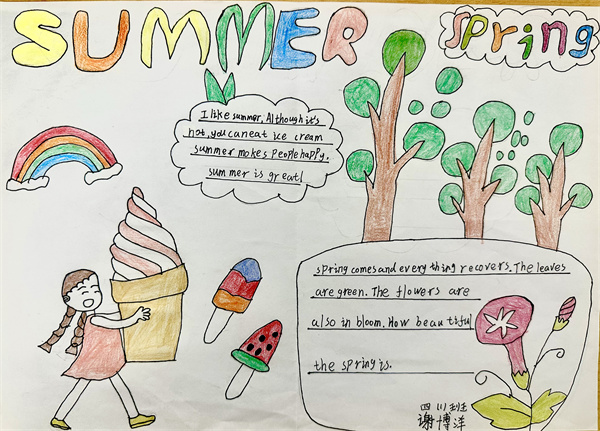 SUMMER
spring
I like summer. Although it's
hot, you can eat ice cream
summer makes people happy.
summer is great!
spring comes and every thing recovers. The leaves
are green. The flowers are
also in bloom. How beautiful
the spring is.
四(1)班
谢博洋